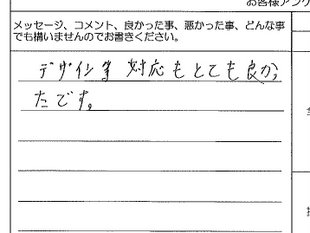 お客様アンケ
メッセージ、コメント、良かった事、悪かった事、どんな事
でも構いませんのでお書きください。
デザイン等 対応もとても良かっ
たです。